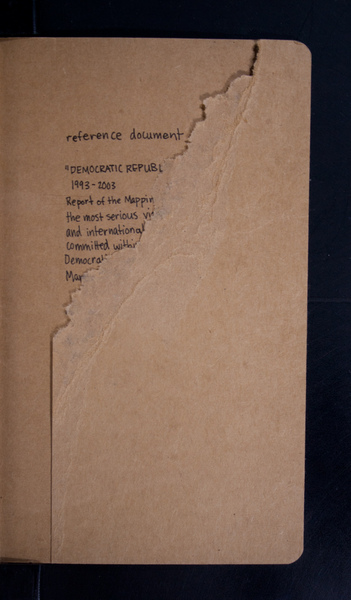 reference document
"DEMOCRATIC REPUBL
1993-2003
Report of the Mappin
the most serious vi
and international
committed within
Democrat
Mar